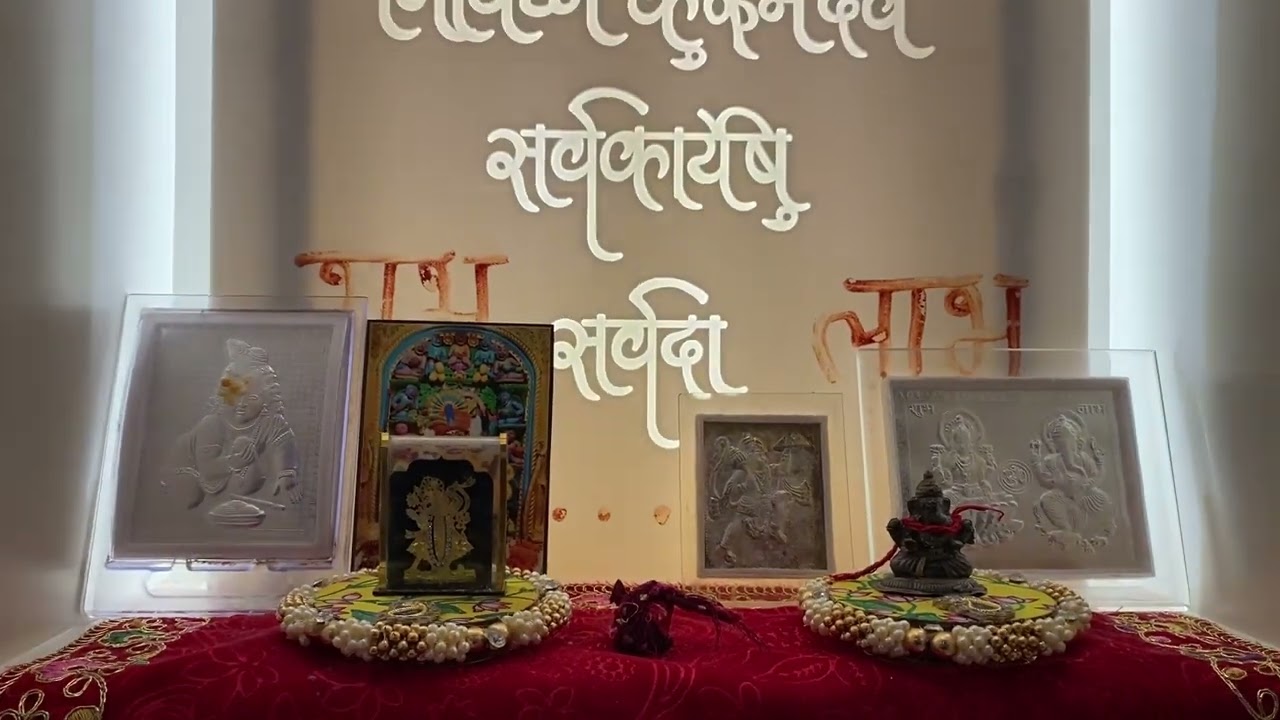 सर्वकार्येषु
शुभ लाभ
सर्वदा
शुभ लाभ